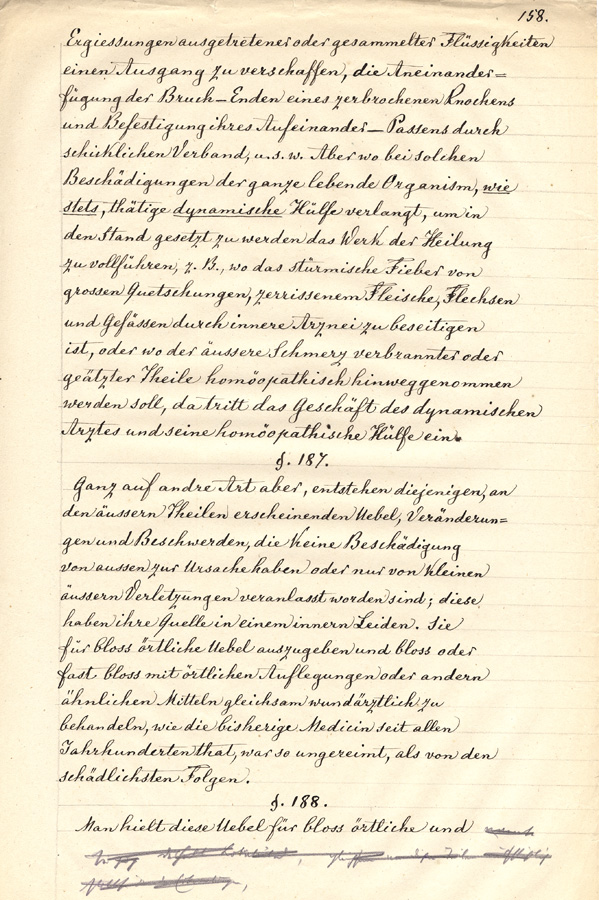 158.
Ergiessungen ausgetretener oder gesammelter Flüssigkeiten
einen Ausgang zu verschaffen, die Aneinander=
fügung der Bruch-Enden eines zerbrochenen Knochens
und Befestigung ihres Aufeinander-Passens durch
schicklichen Verband, u.s.w. Aber wo bei solchen
Beschädigungen der ganze lebende Organism, wie
stets, thätige dynamische Hülfe verlangt, um in
den Stand gesetzt zu werden das Werk der Heilung
zu vollführen, z. B., wo das stürmische Fieber von
grossen Quetschungen, zerrissenem Fleische, Flechsen
und Gefässen durch innere Arznei zu beseitigen
ist, oder wo der äussere Schmerz verbrannter oder
geätzter Theile homöopathisch hinweggenommen
werden soll, da tritt das Geschäft des dynamischen
Arztes und seine homöopathische Hülfe ein.
§. 187.
Ganz auf andre Art aber, entstehen diejenigen, an
den äussern Theilen erscheinenden Uebel, Veränderun=
gen und Beschwerden, die keine Beschädigung
von aussen zur Ursache haben oder nur von kleinen
äussern Verletzungen veranlasst worden sind; diese
haben ihre Quelle in einem innern Leiden. Sie
für bloss örtliche Uebel auszugeben und bloss oder
fast bloss mit örtlichen Auflegungen oder andern
ähnlichen Mitteln gleichsam wundärztlich zu
behandeln, wie die bisherige Medicin seit allen
Jahrhunderten that, war so ungereimt, als von den
schädlichsten Folgen.
§. 188.
Man hielt diese Uebel für bloss örtliche und